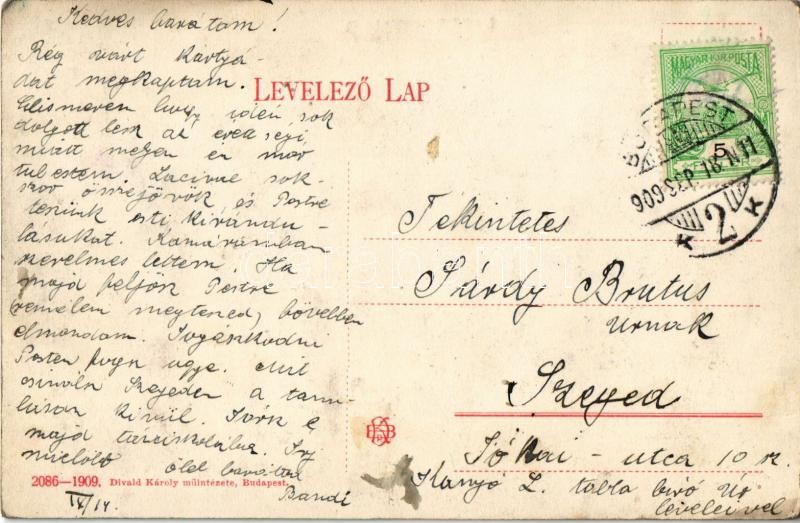 Kedves barátom!
Rég várt kártyá-
dat megkaptam.
Elismerem hogy idén sok
dolgod lesz az érettségi
miatt melyen én már
túlestem. Lacival sok-
szor összejövök és Pestre
teszünk esti kirándu-
lásokat. Komáromban
szerelmes lettem. Ha
majd feljösz Pestre
(remélem megteszed) bővebben
elmondom.
Pesten fogsz ugye. Mit
csinálsz Szegeden a tanu-
láson kívül. Jársz e
majd tánciskolába. Írj
mielőbb ölel barátod
Bandi
IX/14
LEVELEZŐ LAP
MAGYAR KIR. POSTA
5
BUDAPEST
2
K K
Tekintetes
Sárdy Brutus
úrnak
Szeged
Jókai-utca 10 sz.
Kanyo L. tábla bíró úr
levelével
2086—1909. Divald Károly műintézete, Budapest.